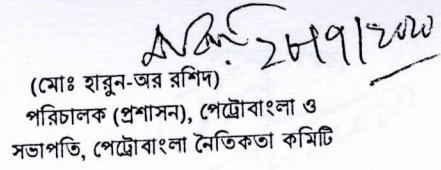 ২৮/৭/২০২০
(মোঃ হারুন-অর রশিদ)
পরিচালক (প্রশাসন), পেট্রোবাংলা ও
সভাপতি, পেট্রোবাংলা নৈতিকতা কমিটি